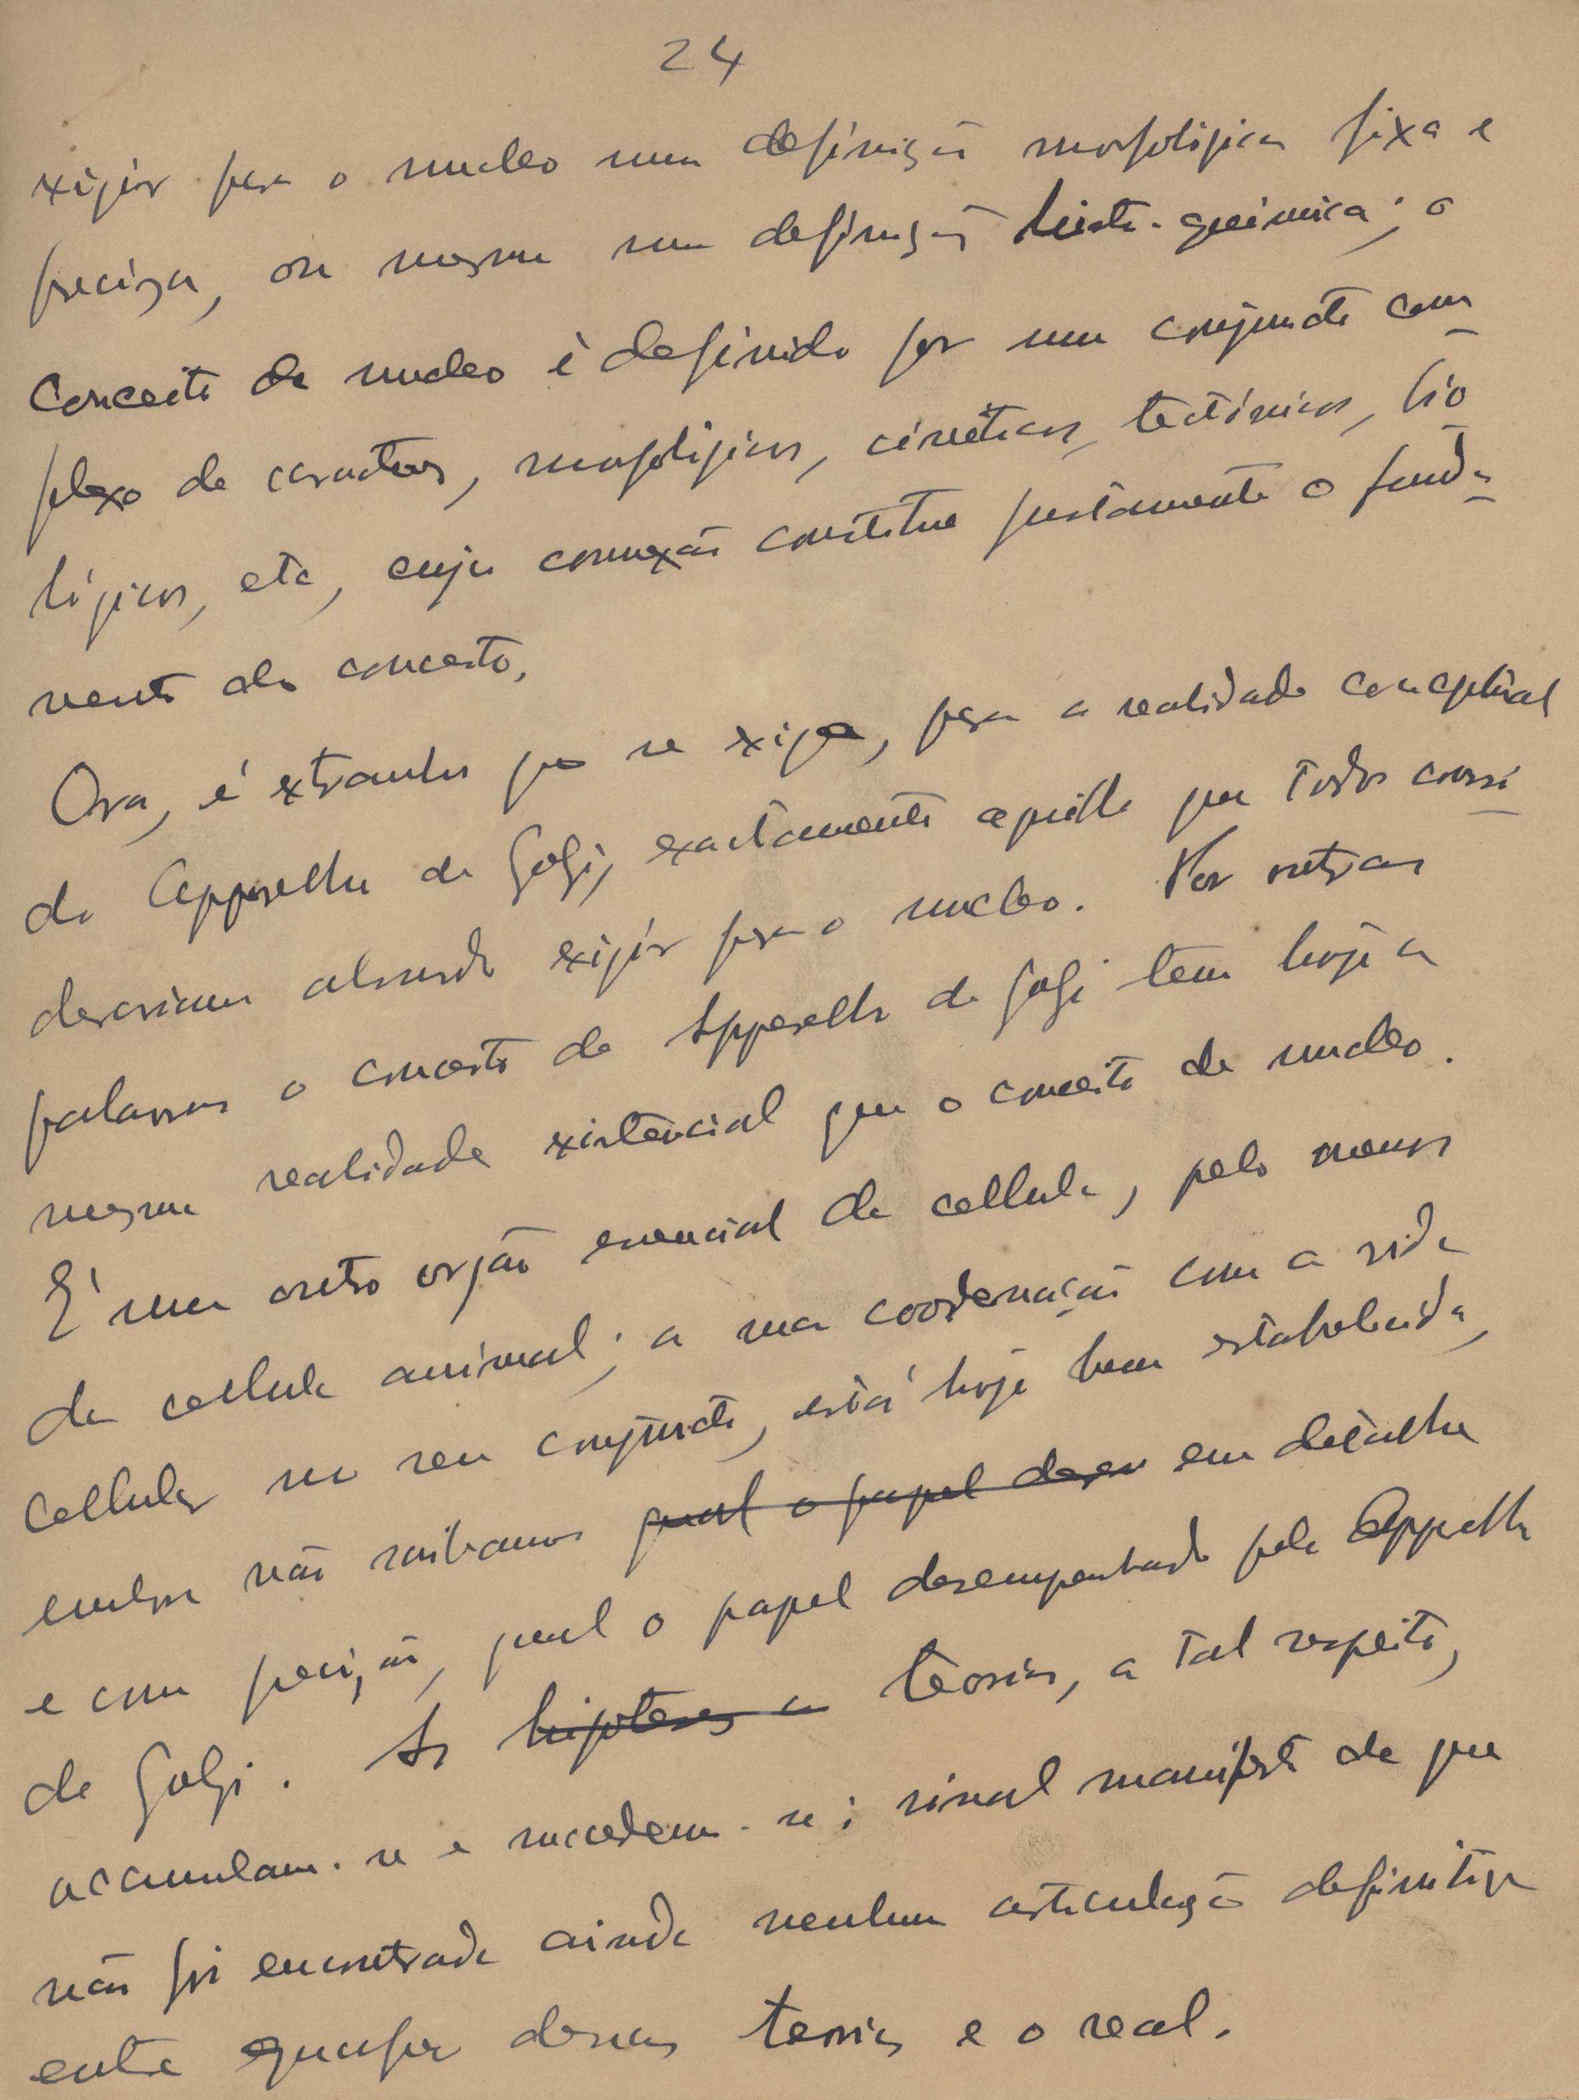 24
exigir para o nucleo uma definição morfologica fixa e
preciza, ou mesmo uma definição histo-quimica; o
conceito de nucleo é definido por um conjuncto com-
plexo de caracteres, morfologicos, cinéticos, tectónicos, bio-
lógicos, etc, cuja connexão constitue justamente o funda-
mento do conceito.
Ora, é extranho que se exija, para a realidade conceptual
do Apparelho de Golgi, exactamente aquillo que todos consi-
derariam absurdo exigir para o nucleo. Por outras
palavras o conceito de Apparelho de Golgi tem hoje a
mesma realidade existencial que o conceito de nucleo.
É um outro orgão essencial da cellula, pelo menos
da cellula animal; a sua coordenação com a vida
cellular no seu conjuncto, está hoje bem estabelecida,
embora não saibamos qual o papel desem em detalhe
e com precisão, qual o papel desempenhado pelo Apparelho
de Golgi. As hipoteses a teorias, a tal respeito,
accumulam-se e succedem-se; sinal manifesto de que
não foi encontrada ainda nenhuma articulação definitiva
entre qualquer dessas teorias e o real.